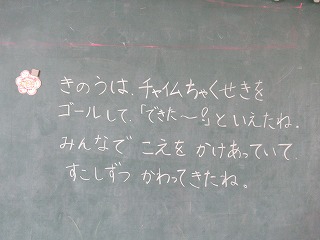 きのうは、チャイムちゃくせきを
ゴールして、「できた〜!」といえたね。
みんなで こえを かけあっていて、
すこしずつ かわってきたね。